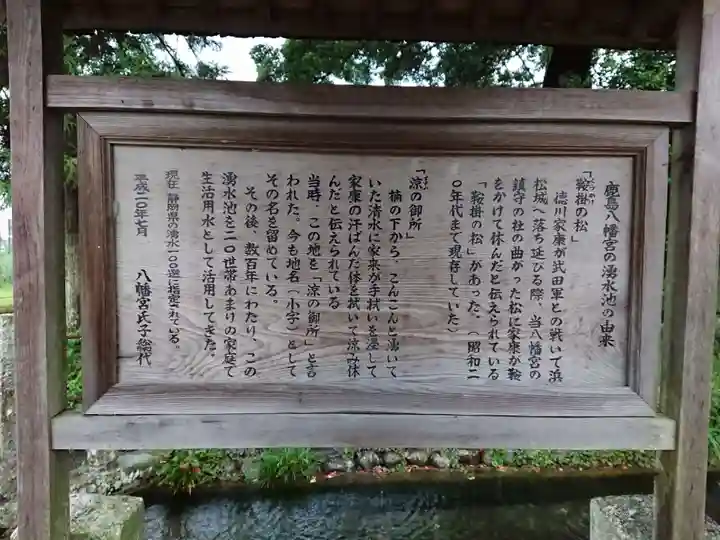 鹿島八幡宮の湧水池の由来
「鞍掛の松」
徳川家康が武田軍との戦いで浜
松城へ落ち延びる際、当八幡宮の
鎮守の杜の曲がった松に家康が鞍
をかけて休んだと伝えられている
「鞍掛の松」があった。（昭和二
〇年代まで現存していた）
「涼の御所」
楠の下から、こんこんと湧いて
いた清水に家来が手拭いを浸して
家康の汗ばんだ体を拭いて涼み休
んだと伝えられている
当時、この地を「涼の御所」と言
われた。今も地名（小字）として
その名を留めている。
その後、数百年にわたり、この
湧水池を二〇世帯あまりの家庭で
生活用水として活用してきた。
現在 静岡県の湧水一〇〇選に指定されている。
平成二〇年七月 八幡宮氏子総代